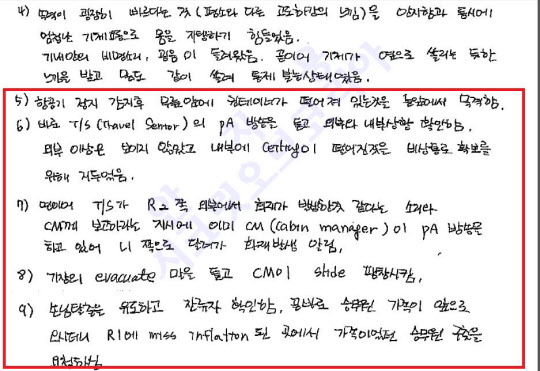 4) 속력이 굉장히 빠르다는 것 (평소와 다른 고도하강의 느낌)을 인지함과 동시에
엄청난 기체 요동으로 몸을 지탱하기 힘들었음.
기내안의 비명소리, 굉음이 들려왔음. 곧이어 기체가 옆으로 쏠리는 듯한
느낌을 받고 몸도 같이 쏠려 통제 불능상태였음.
5) 항공기 정지 감지후 앞에 컴테이너가 떨어져 있는것을 목격함.
6) 바로 T/S (Travel Senior)의 PA 방송을 듣고 외부와 내부상황 확인함.
외부 이상은 보이지 않았고 내부에 Ceiling이 떨어진것은 비상통로 확보를
위해 거두었음.
7) T/S가 R2쪽 외부에서 화재가 발생한것 같다는 소리와
CM께 보고하라는 지시에 이미 CM (Cabin manager)이 PA 방송을
하고 있어 L1 쪽으로 달려가 화재발생 알림.
8) 기장의 evacuate 말을 듣고 CM이 slide 팽창시킴.
9) 손님탈출을 유도하고 잔류자 확인함. 곧바로 승무원 가족이 앞으로
오시더니 R1에 miss inflation 된 곳에서 가족이었던 승무원 구출을
요청하심